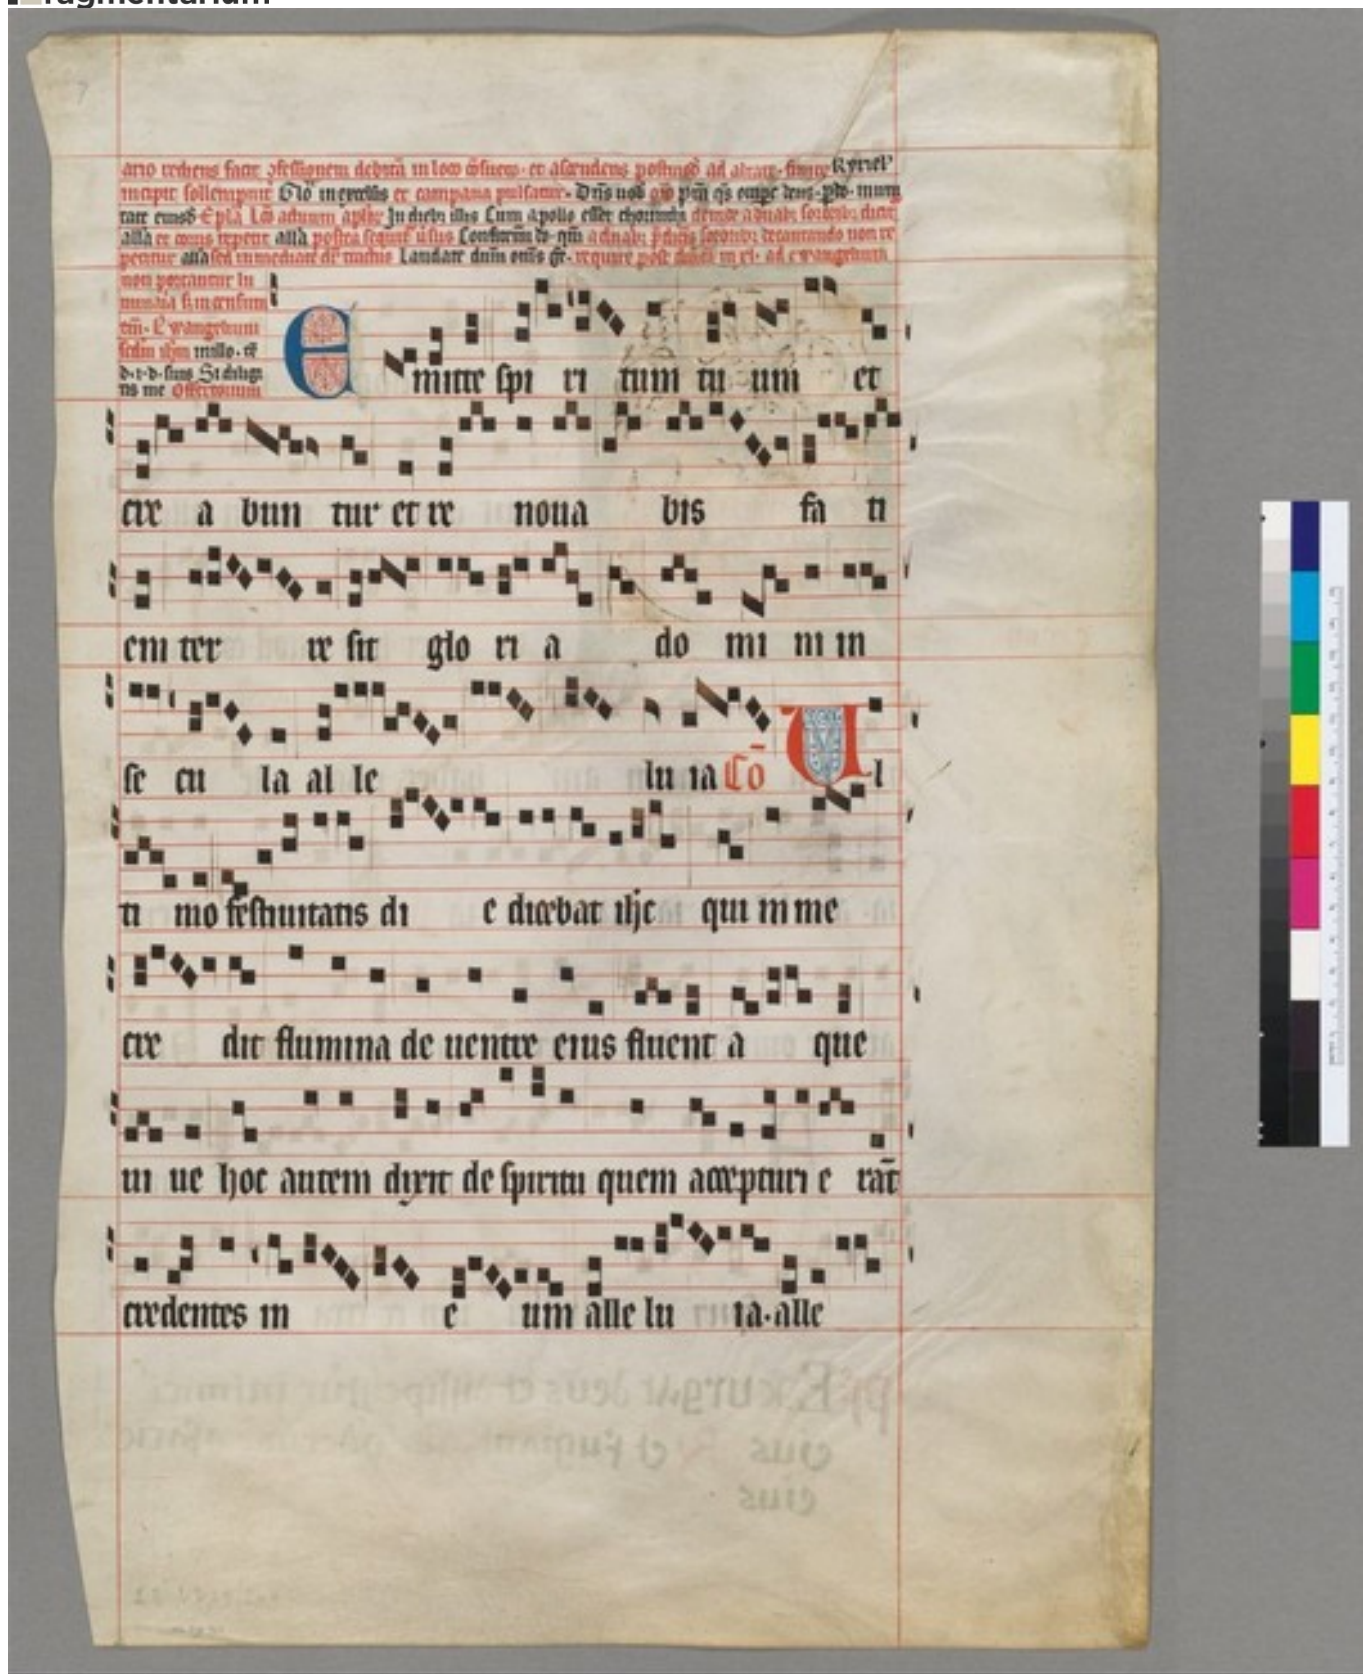 ragmentarium
ario rediens facit ꝯfessionem debitā in loco ꝯsueto. et ascendens postmodū ad altare. finito Kyriel'
incipit sollempnit Glō in excelsis et campana pulsatur. Dn̄s uob
tate eiusd Epl̄a Lc̄o actuum aplōꝝ In dieb; illis Cum apollo esset chorinthi deinde a duab; sororib; dicit
alla et corus repetit alla postea sequit̄ ūsus Confitemini dn̄o qm̄ a duab; decantando non re
petitur alla sed inmediate dr̄ tractus Laudate dnm̄ om̄s ge. require post ad ewangelium
non portantur lu
minaria s; incensum
tm̄. Ewangelium
scdm ihm in illo. tē
d. i. d. suis Si diligi
tis me Offertorium
Emitte spi ri tum tu um et
cre a bun tur et re noua bis fa ti
em ter re sit glo ri a do mi ni in
se cu la al le lu ia Cō Ul
ti mo festiuitatis di e dicebat ihc qui in me
cre dit flumina de uentre eius fluent a que
ui ue hoc autem dixit de spiritu quem accepturi e rāt
credentes in e um alle lu ia. alle